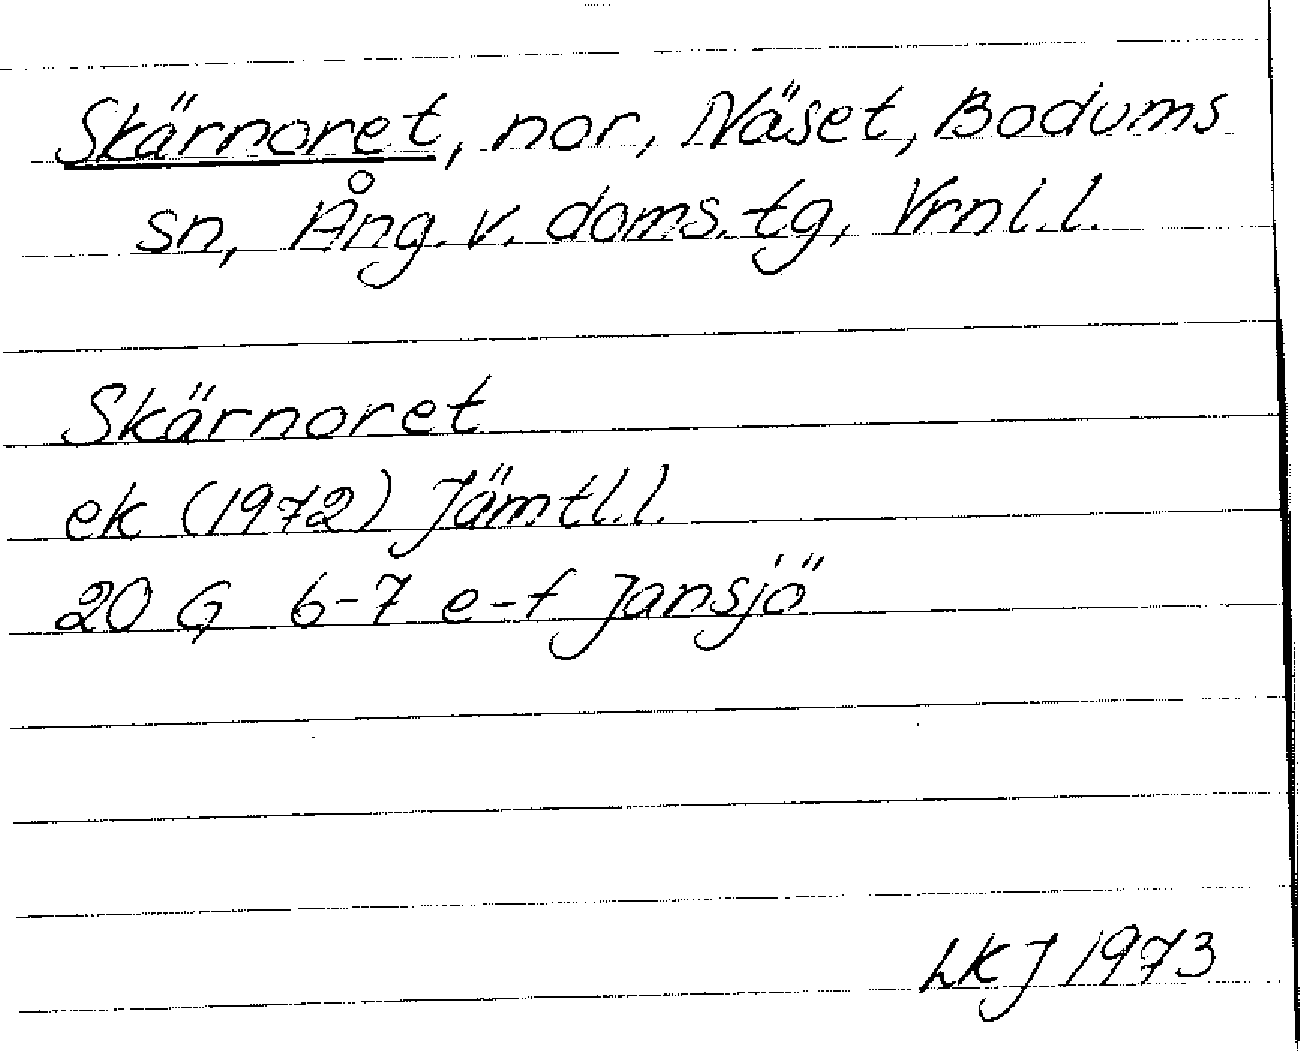 Skärnoret, nor, Näset, Bodums
sn, Ång. v. doms. tg, Vrnl. l.
Skärnoret
ek (1972) Jämtl. l.
20 G 6-7 e-f Jansjö
LKJ 1973